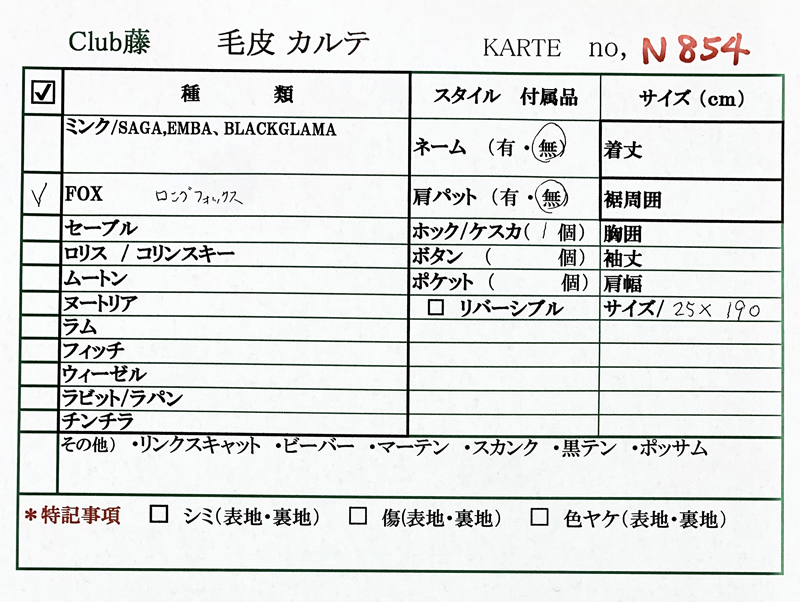 Club藤 毛皮 カルテ KARTE no, N854
☑ 種 類 スタイル 付属品 サイズ（cm）
ミンク/SAGA,EMBA、BLACKGLAMA ネーム （有・無） 着丈
✓ FOX ロングフォックス 肩パット（有・無） 裾周囲
セーブル ホック/ケスカ( 1 個) 胸囲
ロリス / コリンスキー ボタン ( 個) 袖丈
ムートン ポケット ( 個) 肩幅
ヌートリア □ リバーシブル サイズ/ 25× 190
ラム
フィッチ
ウィーゼル
ラビット/ラパン
チンチラ
その他）・リンクスキャット ・ビーバー ・マーテン ・スカンク ・黒テン ・ポッサム
＊特記事項 □ シミ(表地・裏地) □ 傷(表地・裏地) □ 色ヤケ(表地・裏地)